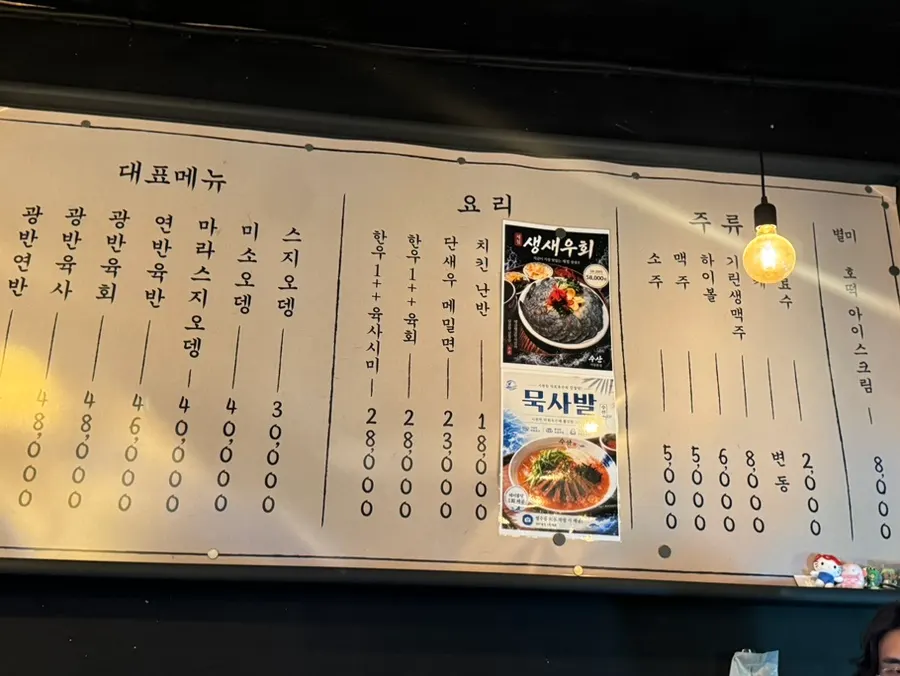 대표메뉴
광반연반
광반육사 48,000
광반육회 48,000
연반육반 46,000
마라스지오뎅 40,000
미소오뎅 40,000
스지오뎅 30,000
요리
한우1++육사시미 28,000
한우1++육회 28,000
단새우 메밀면 23,000
치킨 난반 18,000
생새우회
58,000
수산
묵사발
수산
주류
소주 5,000
맥주 5,000
하이볼 6,000
기린생맥주 8,000
변동
수 2,000
별미
호떡 아이스크림 8,000